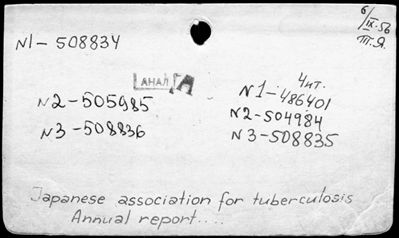 6/IX-56
Ш.Я.
N1- 508834
АНАЛ
N2-505985
N3-508836
4 ит.
N1-486401
N2-504984
N3-508835
Japanese association for tuberculosis
Annual report....